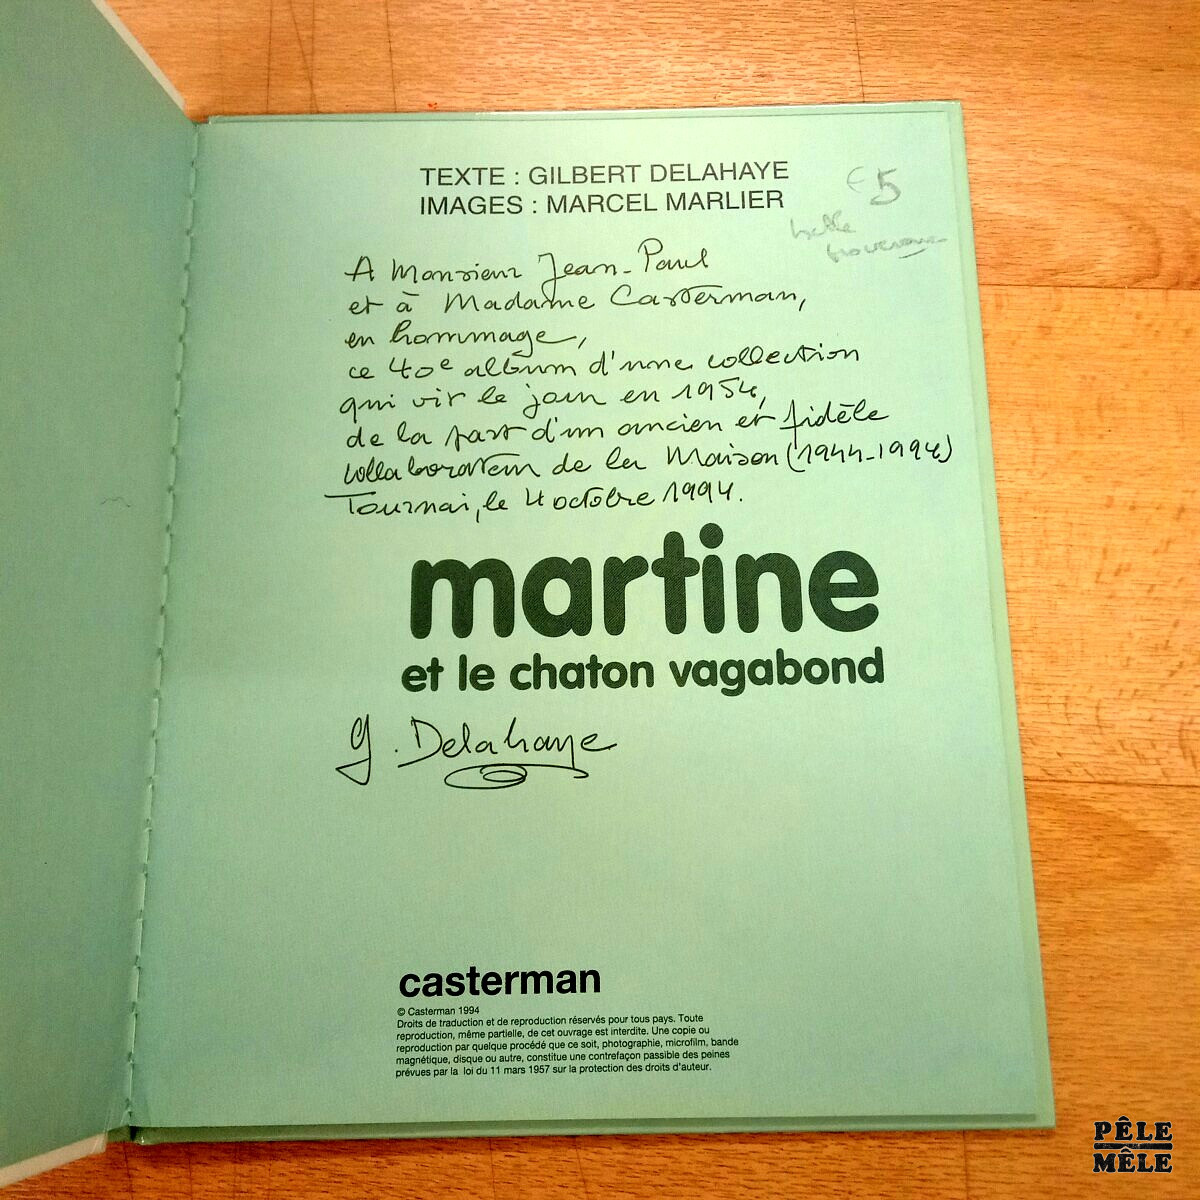 TEXTE : GILBERT DELAHAYE
IMAGES : MARCEL MARLIER
€ 5
belle
A Monsieur Jean-Paul
et à Madame Casterman,
en hommage,
ce 40e album d'une collection
qui vit le jour en 1954,
de la part d'un ancien et fidèle
collaborateur de la Maison (1944-1994)
Tournai, le 4 octobre 1994.
martine
et le chaton vagabond
G. Delahaye
casterman
© Casterman 1994
Droits de traduction et de reproduction réservés pour tous pays. Toute
reproduction, même partielle, de cet ouvrage est interdite. Une copie ou
reproduction par quelque procédé que ce soit, photographie, microfilm, bande
magnétique, disque ou autre, constitue une contrefaçon passible des peines
prévues par la loi du 11 mars 1957 sur la protection des droits d'auteur.
PÊLE
MÊLE